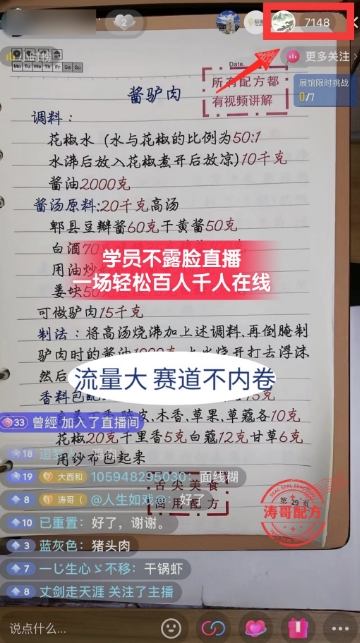 7148
更多关注
展馆限时挑战
0/7
Date
所有配方都
有视频讲解
酱驴肉
调料:
花椒水(水与花椒的比例为50:1
水沸后放入花椒煮开后放凉)10千克
酱油2000克
酱汤原料:20千克高汤
郫县豆瓣酱60克干黄酱50克
白酒
学员不露脸直播
一场轻松百人千人在线
用油炒
姜块50
可做驴肉15千克
制法:将高汤烧沸加上述调料,再倒腌制
驴肉时的酱油
上火烧开打去浮沫
然后
流量大 赛道不内卷
香料包配
木香,草果,草蔻各10克
花椒20克千里香5克白蔻12克甘草6克
用纱布包起来
33 曾經 加入了直播间
18
19 大西和 105948295030:面线糊
8 涛哥 (@人生如戏@:好了
10 已重置:好了,谢谢。
3 蓝灰色:猪头肉
8 一じ生心ゝ不移:干锅虾
8 丈剑走天涯 关注了主播
舌尖美食
商用配方
涛哥配方
说点什么...